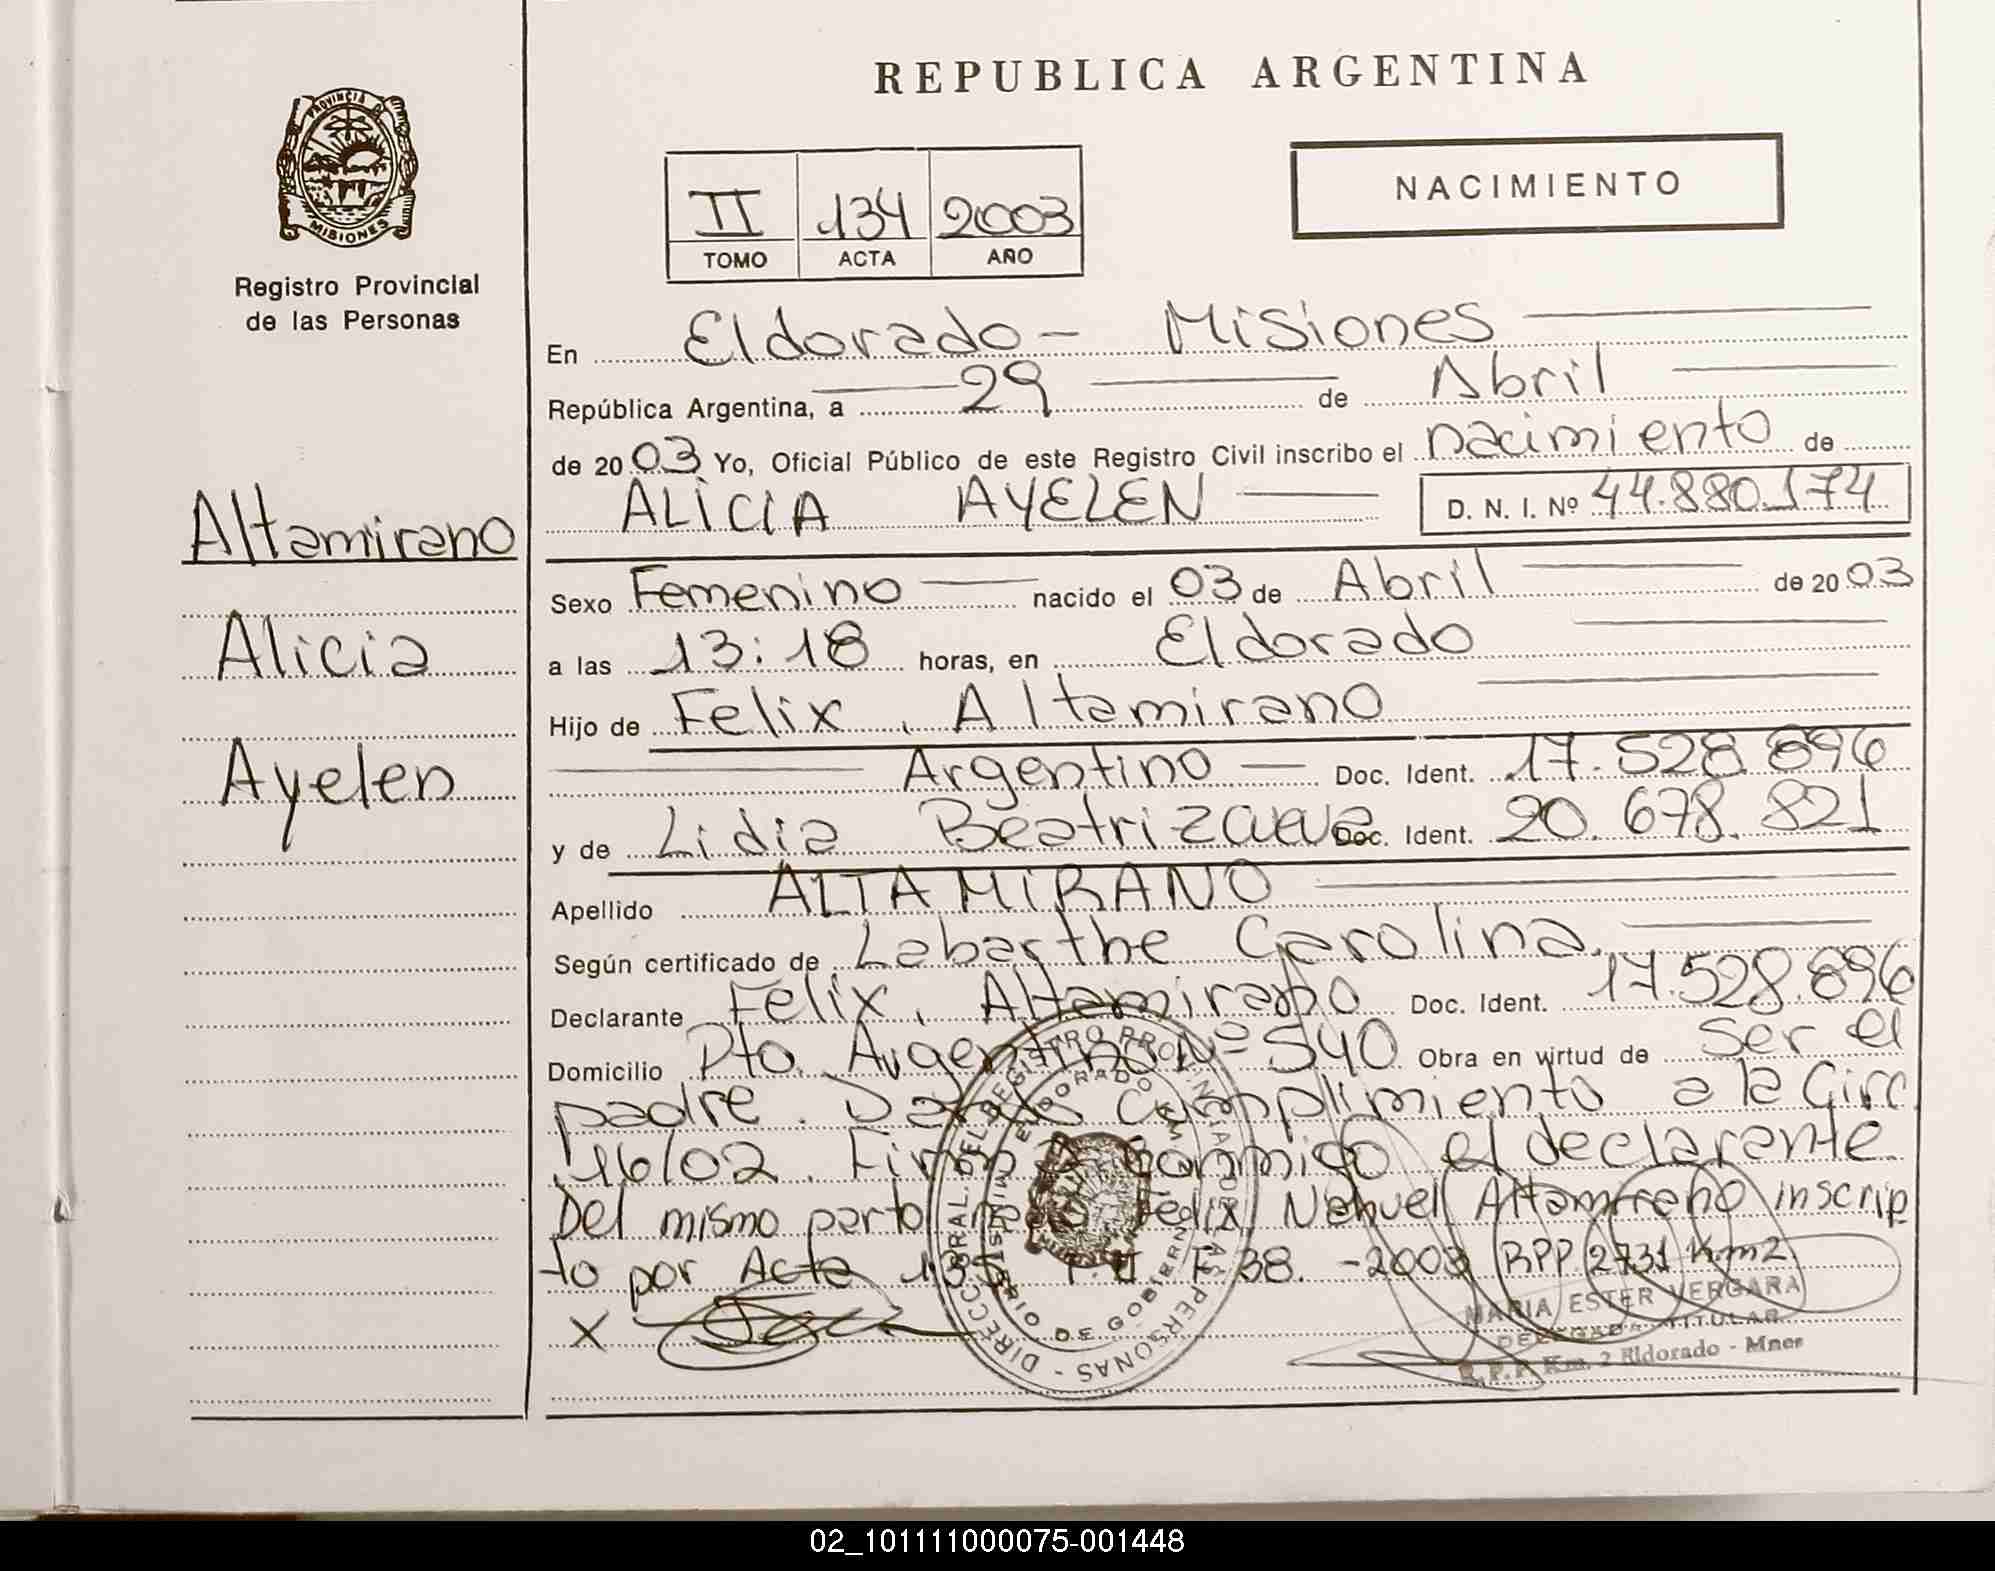 REPUBLICA ARGENTINA
PROVINCIA DE
MISIONES
Registro Provincial
de las Personas
II 134 2003
TOMO ACTA AÑO
NACIMIENTO
En Eldorado - Misiones
República Argentina, a 29 de Abril
de 20 03 Yo, Oficial Público de este Registro Civil inscribo el nacimiento de
ALICIA AYELEN D. N. I. Nº 44.880.174
Altamirano
Alicia
Ayelen
Sexo Femenino nacido el 03 de Abril de 20 03
a las 13:18 horas, en Eldorado
Hijo de Felix, Altamirano
Argentino Doc. Ident. 17.528.896
y de Lidia Beatriz Doc. Ident. 20.678.821
Apellido ALTAMIRANO
Según certificado de Labarthe Carolina.
Declarante Felix, Altamirano Doc. Ident. 17.528.896
Domicilio Pto. Argentino Nº 540 Obra en virtud de ser el
padre. Dando cumplimiento a la Circ.
16/02. Firma conmigo el declarante
Del mismo parto nació Felix Nahuel Altamirano inscrip
to por Acta 135 T. II F 38. -2003 RPP 2731 Km2
X
MARIA ESTER VERGARA
DELEGADA TITULAR
R.P.P. Km. 2 Eldorado - Mnes
02_101111000075-001448